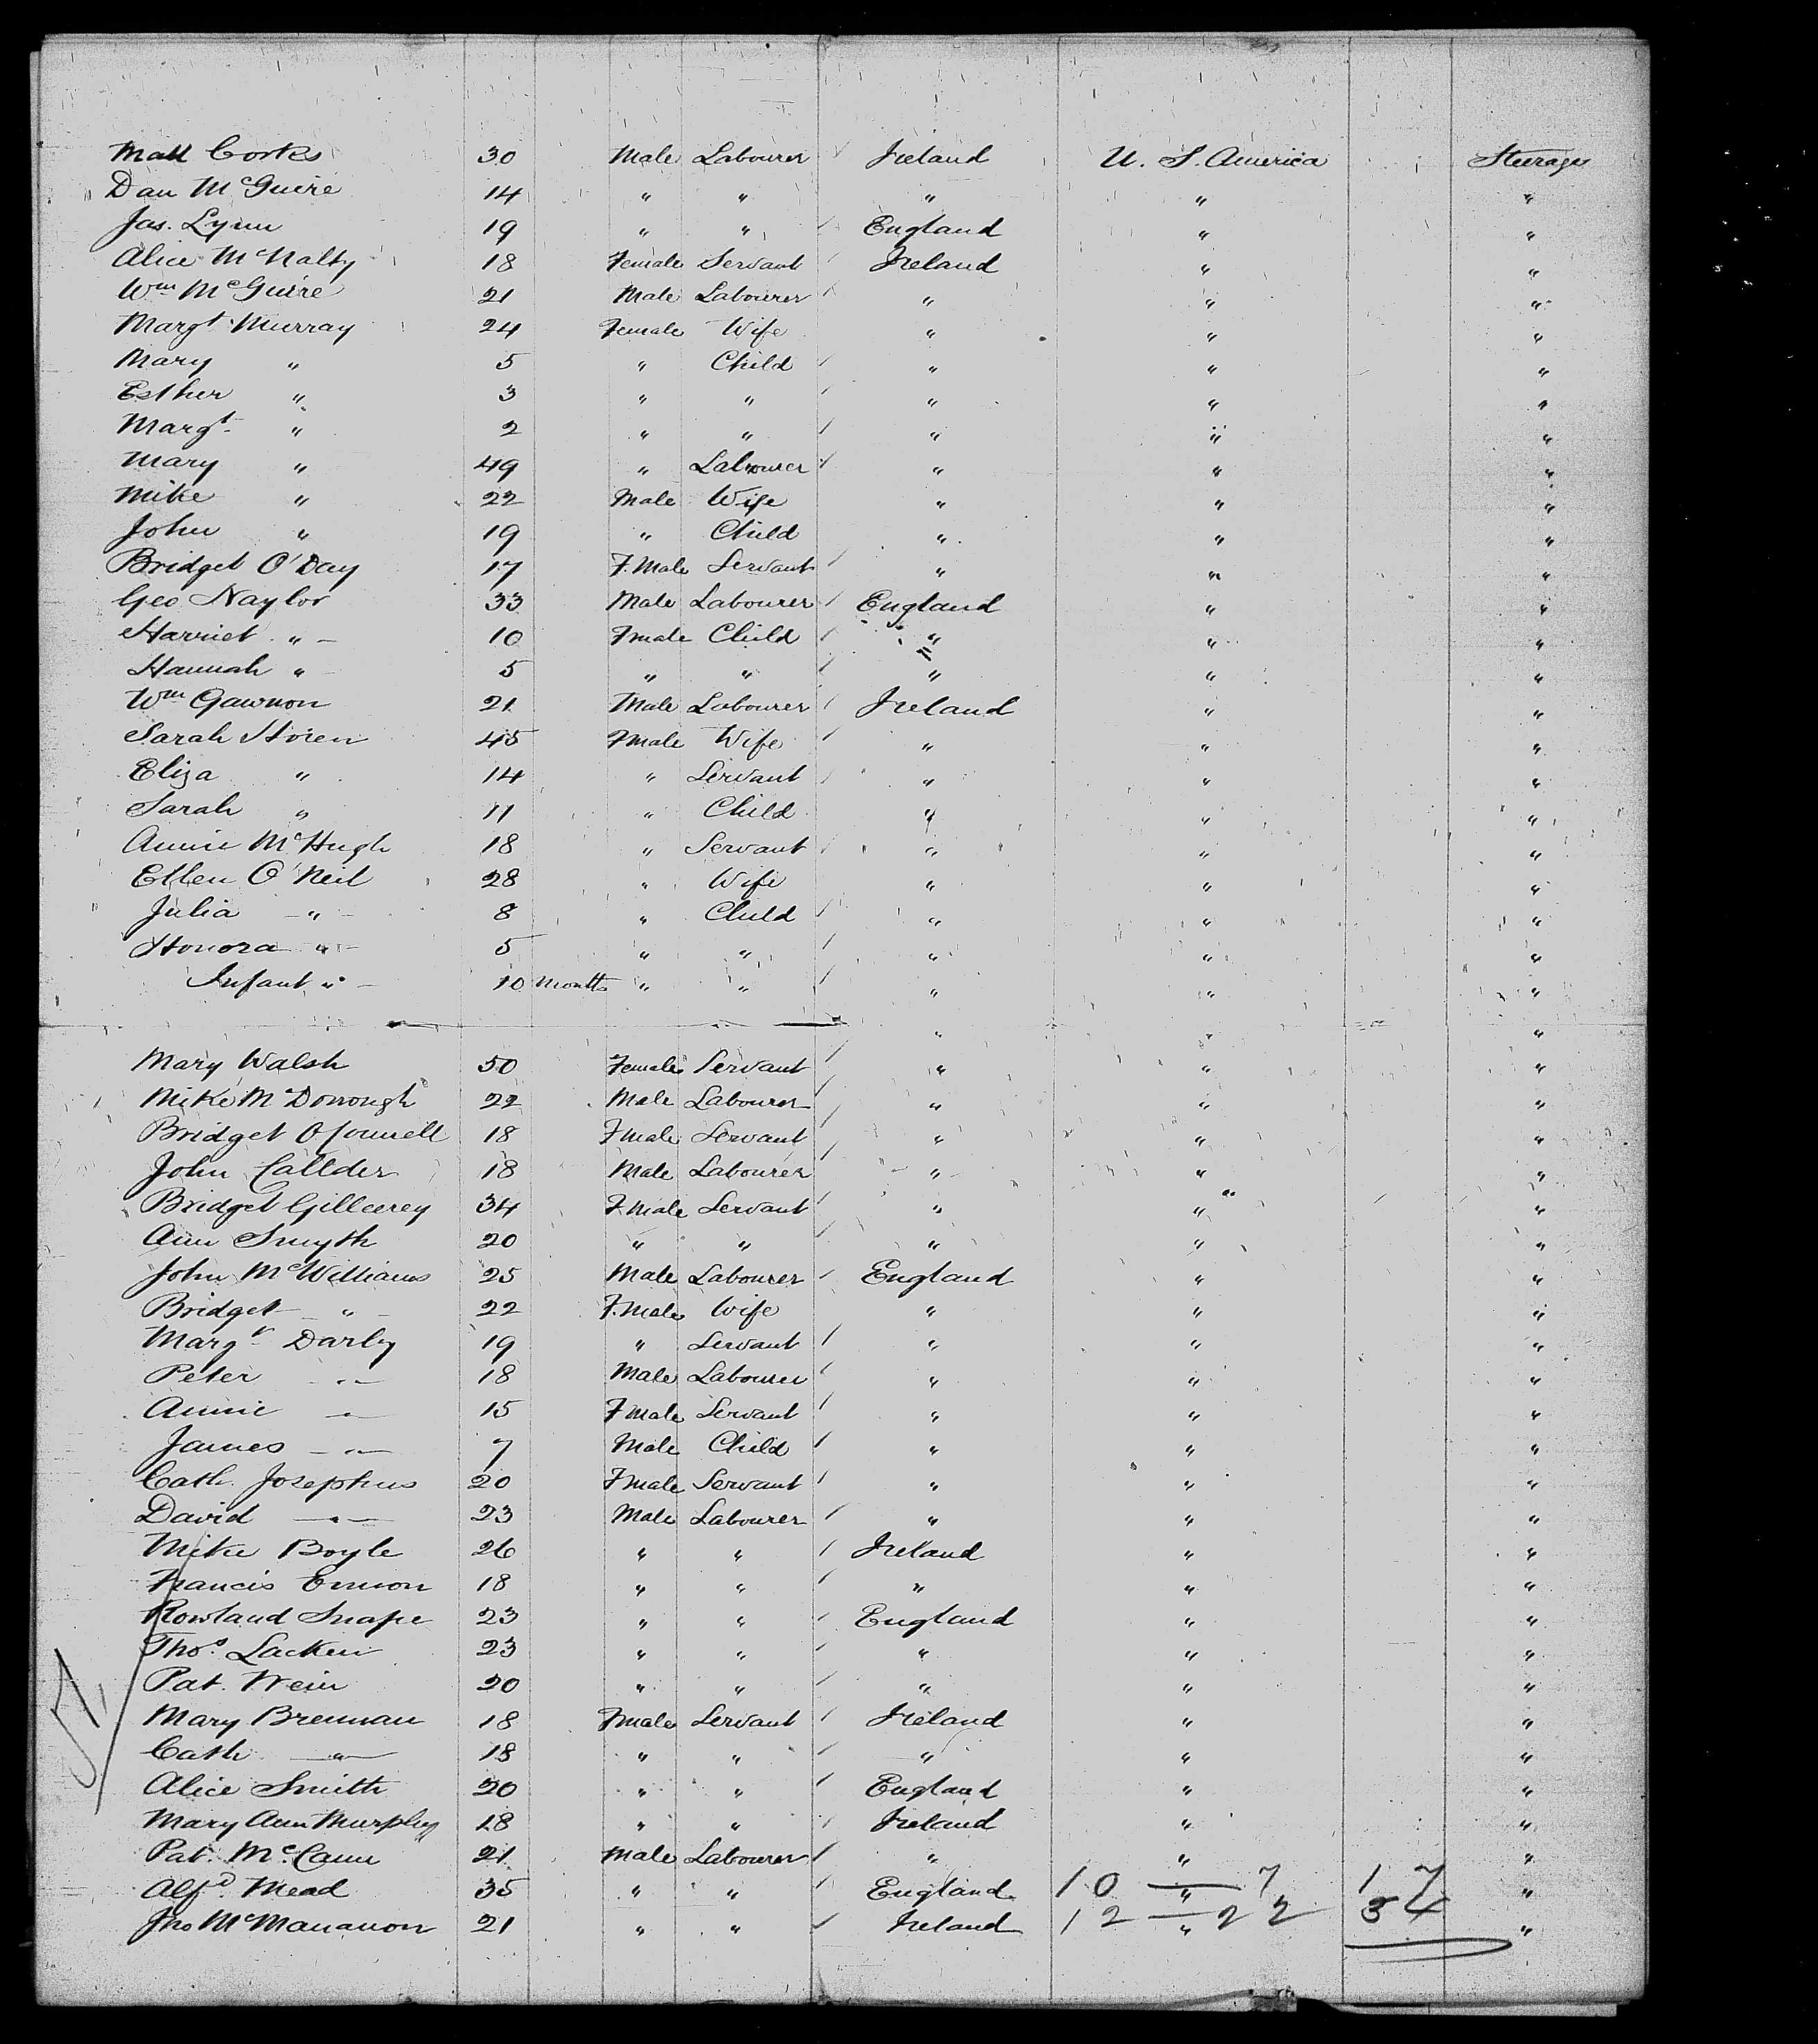 Matt Corks 30 Male Labourer Ireland U. S. America Steerage
Dan McGuire 14 " " " " "
Jas. Lynn 19 " " England " "
Alice McNalty 18 Female Servant Ireland " "
Wm McGuire 21 Male Labourer " " "
Margt Murray 24 Female Wife " " "
Mary " 5 " Child " " "
Esther " 3 " " " " "
Margt " 2 " " " " "
Mary " 49 " Labourer " " "
Mike " 22 Male Wife " " "
John " 19 " Child " " "
Bridget O'Day 17 F.Male Servant " " "
Geo Naylor 33 Male Labourer England " "
Harriet " 10 Fmale Child " " "
Hannah " 5 " " " " "
Wm Gawnon 21 Male Labourer Ireland " "
Sarah Horen 45 Fmale Wife " " "
Eliza " 14 " Servant " " "
Sarah " 11 " Child " " "
Annie McHugh 18 " Servant " " "
Ellen O'Neil 28 " Wife " " "
Julia " 8 " Child " " "
Honora " 5 " " " " "
Infant " 10 Months " " " " "
" " "
Mary Walsh 50 Female Servant " " "
Mike McDonough 22 Male Labourer " " "
Bridget OConnell 18 Fmale Servant " " "
John Callder 18 Male Labourer " " "
Bridget Gilleerey 34 Fmale Servant " " "
Ann Smyth 20 " " " " "
John McWilliams 25 Male Labourer England " "
Bridget " 22 F.Male Wife " " "
Margt Darby 19 " Servant " " "
Peter " 18 Male Labourer " " "
Annie " 15 Fmale Servant " " "
James " 7 Male Child " " "
Cath. Josephus 20 Fmale Servant " " "
David " 23 Male Labourer " " "
Mike Boyle 26 " " Ireland " "
Francis Ennon 18 " " " " "
Rowland Snape 23 " " England " "
Thos. Lacken 23 " " " " "
Pat. Wein 20 " " " " "
Mary Brennan 18 Fmale Servant Ireland " "
Cath " 18 " " " " "
Alice Smith 20 " " England " "
Mary Ann Murphy 18 " " Ireland " "
Pat. McCann 21 Male Labourer " " "
Alfd Mead 35 " " England 10 — " 7 17 "
Jno McMananon 21 " " Ireland 12 — " 22 34 "